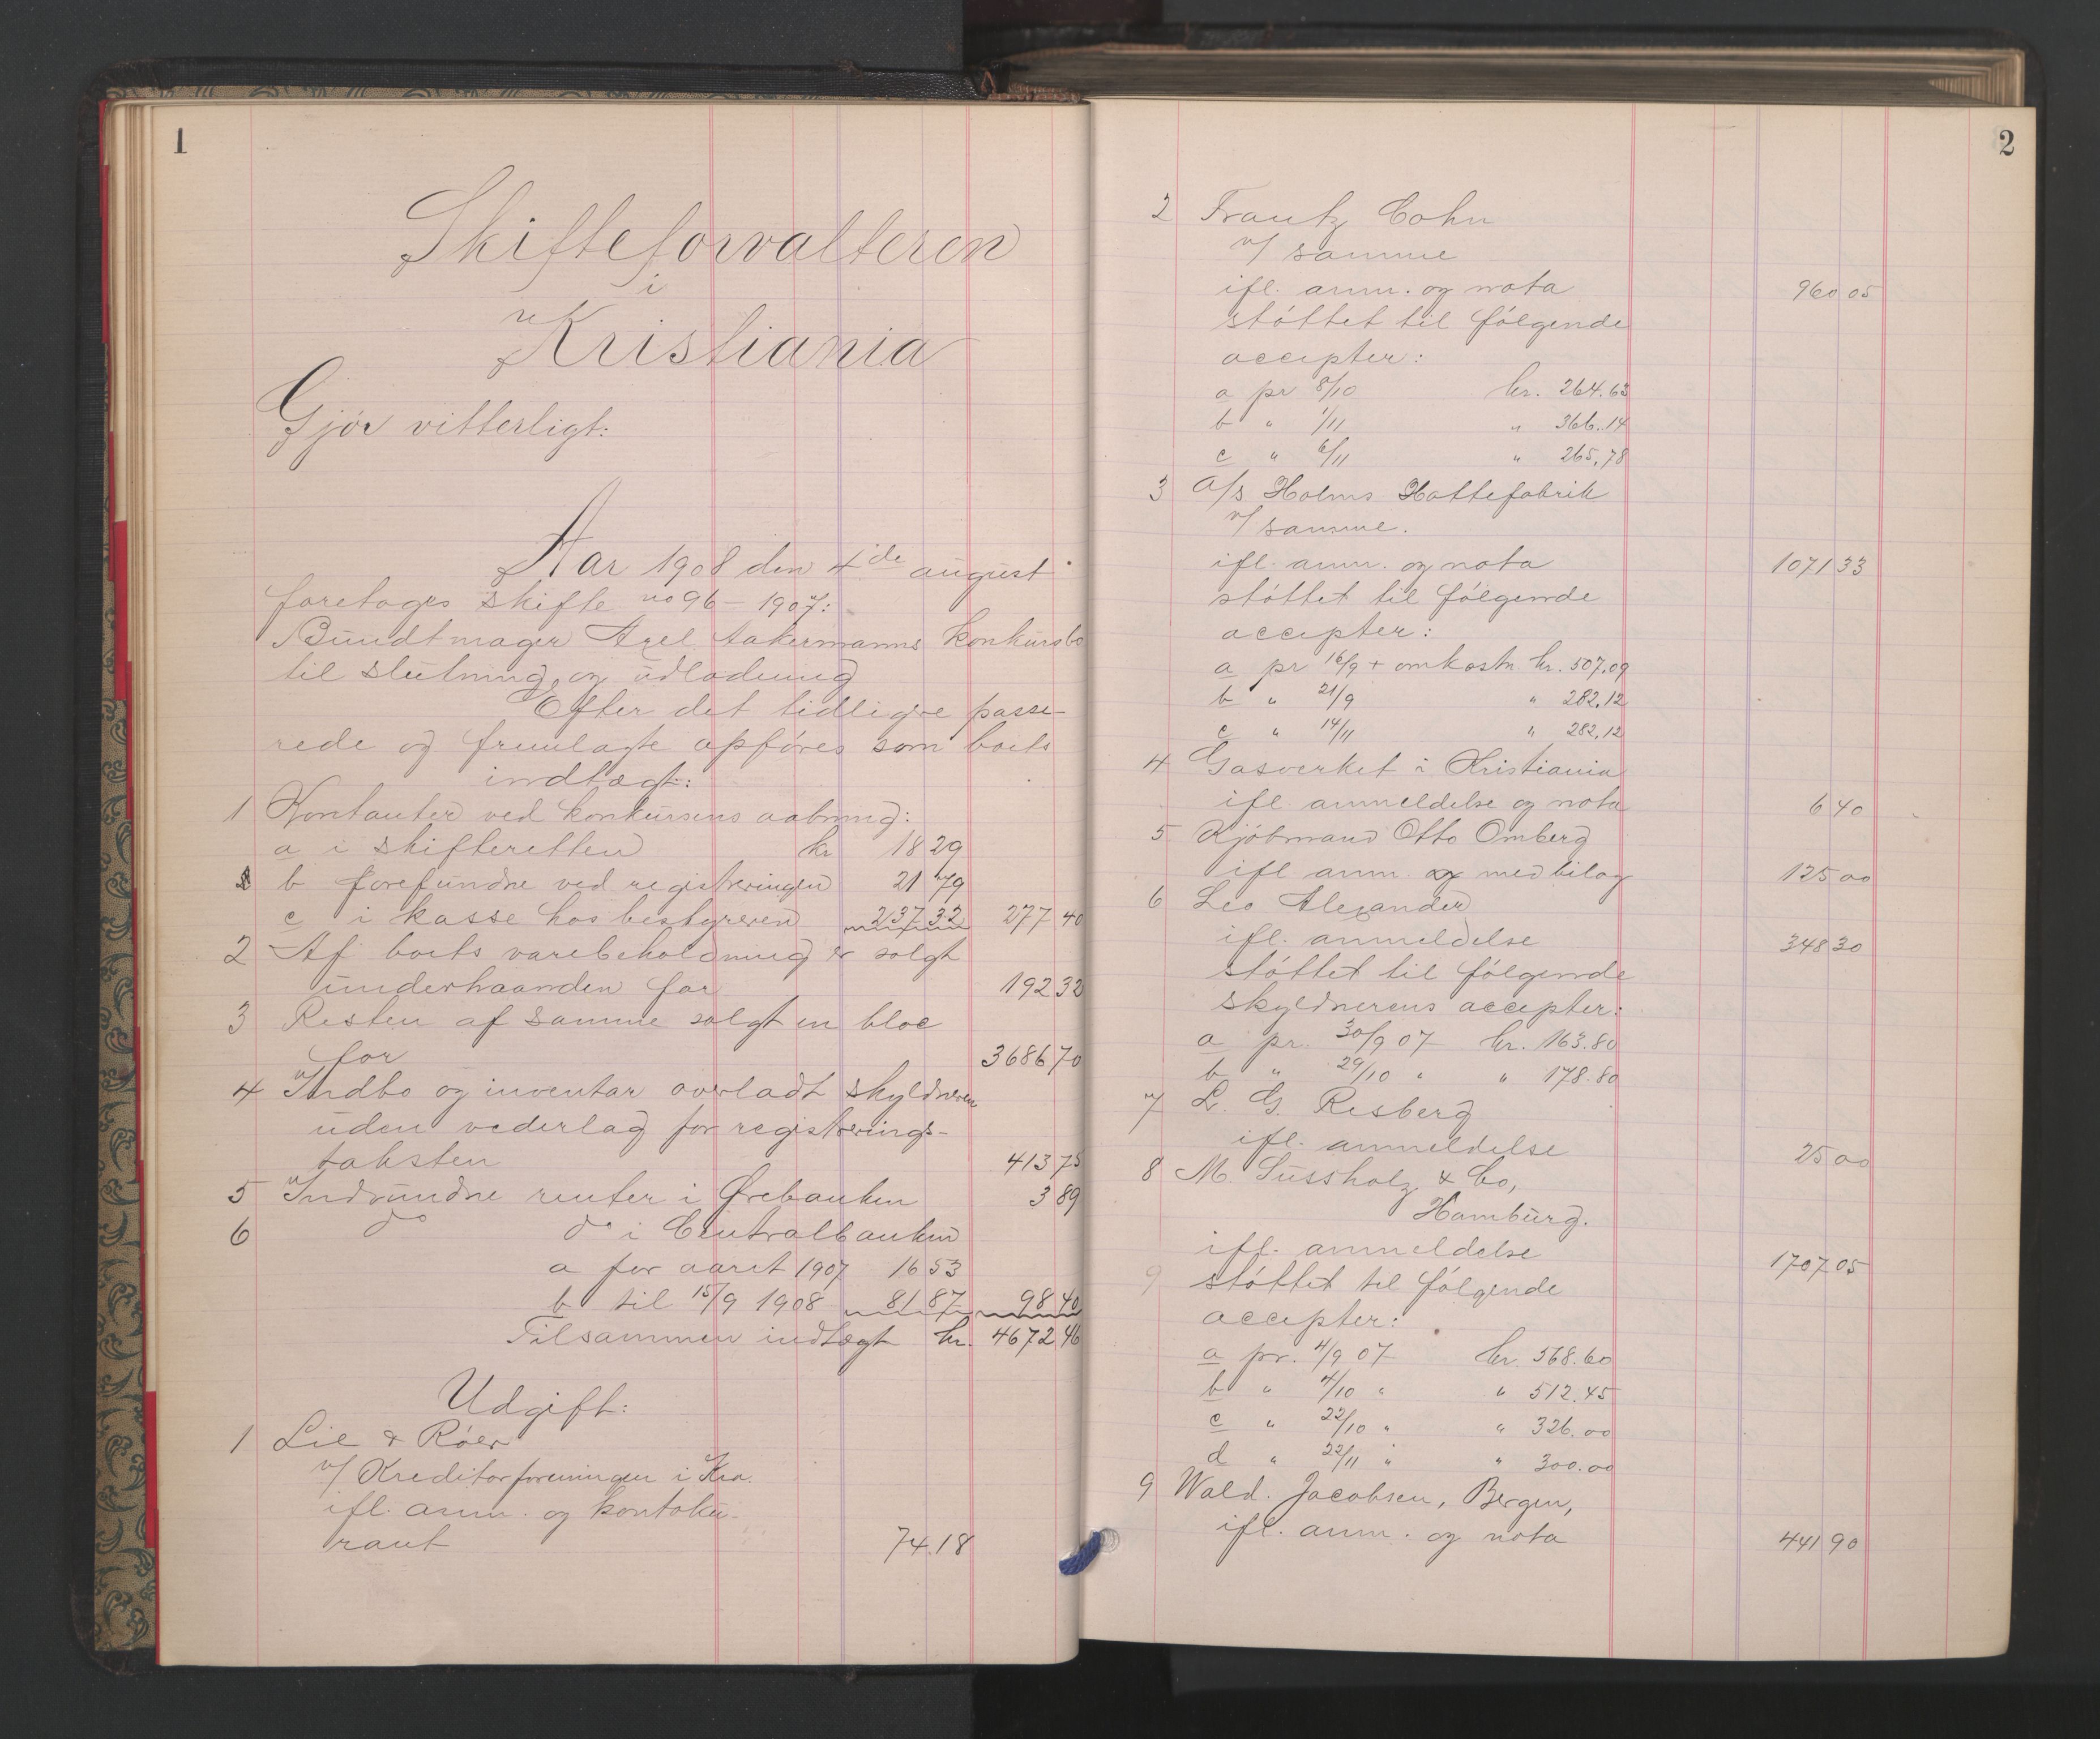 1
Skifteforvalteren
i
Kristiania
Gjör vitterligt:
Aar 1908 den 4de august
foretoges skifte no 96 - 1907:
Bundtmager Axel Aakermanns konkursbo
til slutning og udlodning
Efter det tidligre passe-
rede og fremlagte opföres som boets
indtægt:
1 Kontanter ved konkursens aabning:
a i skifteretten kr 18 29
b forefundne ved registreringen 21 79
c i kasse hos bestyreren 237 32 277 40
2 Af boets varebeholdning er solgt
underhaanden for 192 32
3 Resten af samme solgt en bloc
for 3686 70
4 Indbo og inventar overladt skyldneren
uden vederlag for registrerings-
taksten 413 75
5 Indvundne renter i Örebanken 3 89
6 do do i Centralbanken
a for aaret 1907 16 53
b til 15/9 1908 81 87 98 40
Tilsammen indtægt kr. 4672 46
Udgift:
1 Lie & Röer
v/ Kreditorforeningen i Kra.
ifl. anm. og kontoku-
rant 74.18
2
2 Frantz Cohn
v/ samme
ifl. anm. og nota 960 05
stöttet til fölgende
accepter:
a pr 8/10 kr. 264.63
b " 1/11 " 366.14
c " 6/11 " 265,78
3 A/s Holms Hattefabrik
v/ samme.
ifl. anm. og nota 1071 33
stöttet til fölgende
accepter:
a pr 16/9 + omkostn kr. 507.09
b " 21/9 " 282,12
c " 14/11 " 282,12
4 Gasverket i Kristiania
ifl. anmeldelse og nota 6 40
5 Kjöbmand Otto Omberg
ifl anm. og med bilag 125 00
6 Leo Alexander
ifl. anmeldelse 348 30
stöttet til fölgende
skyldnerens accepter:
a pr. 30/9 07 kr. 163.80
b " 29/10 " " 178.80
7 L. G. Resberg
ifl. anmeldelse 25 00
8 M. Sussholz & Co,
Hamburg.
ifl. anmeldelse 1707 05
9 stöttet til fölgende
accepter:
a pr. 4/9 07 kr. 568.60
b " 4/10 " " 512.45
c " 22/10 " " 326.00
d " 22/11 " " 300.00
9 Wald. Jacobsen, Bergen,
ifl. anm. og nota 441 90